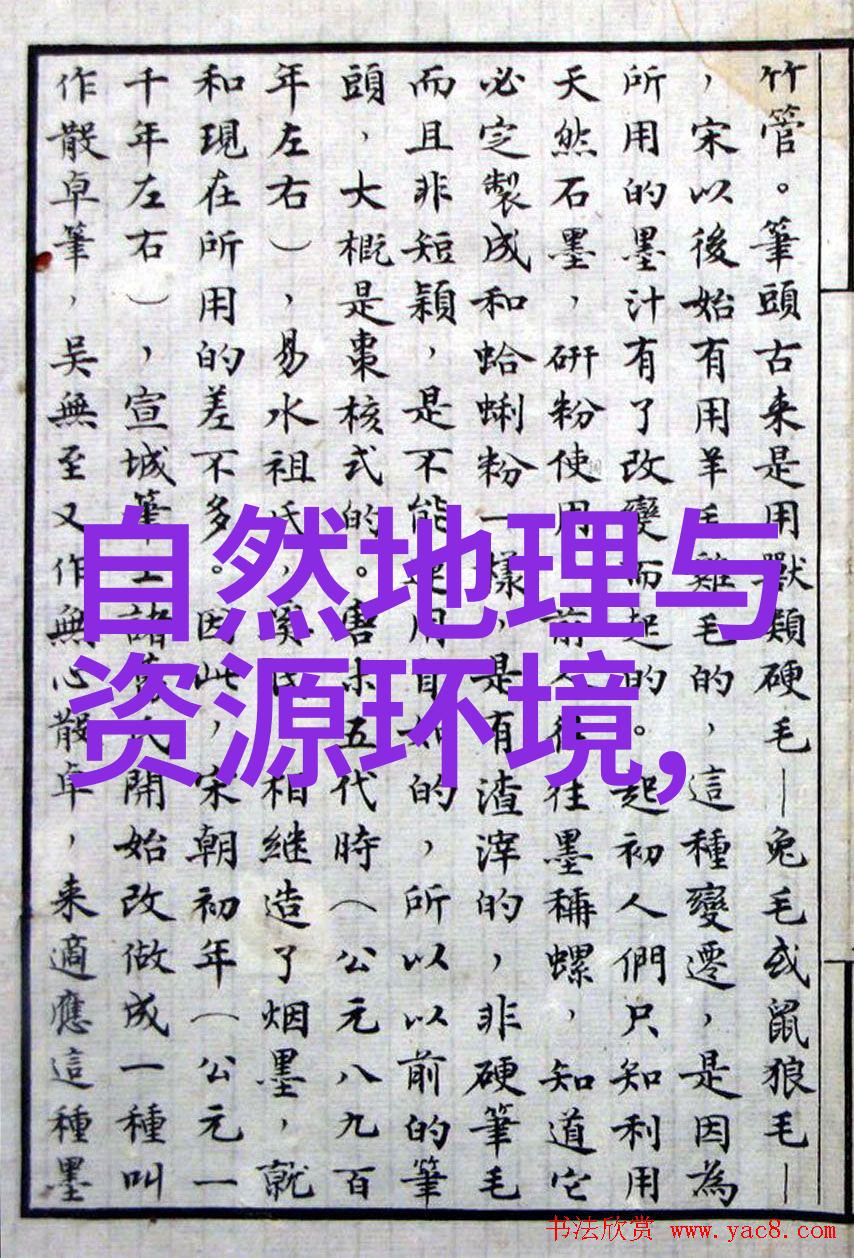 竹管。筆頭古来是用獸類硬毛—兔毛或鼠狼毛—
，宋以後始有用羊毛雞毛的，這種變遷，是因為
所用的墨汁有了改變而起的。起初人們只知利用
天然石墨，研粉使用，前人往往墨稱螺，知道它
必定製成和蛤蜊粉一樣，是有渣滓的，非硬筆毛
而且非短穎，是不能運用自如的，所以以前的筆
頭，大概是棗核式的。唐末五代時（公元八九百
年左右），易水祖氏，奚氏，相继造了烟墨，就
和現在所用的差不多。因此，宋朝初年（公元一
千年左右），宣城筆工諸葛氏開始改做成一種叫
作散卓筆，吳無至又作無心散卓，来適應這種墨
自然地理与
资源环境,
书法欣赏 www.yac8.com